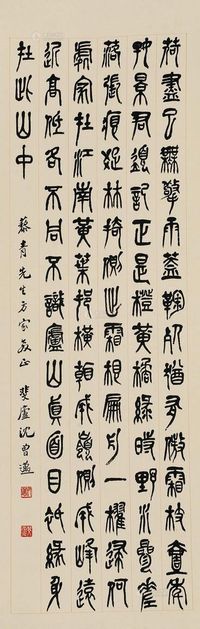 荷盡已無擎雨蓋鞠殘猶有傲霜枝壹年
好景君須記正是橙黃橘綠時野水參差
落漲痕疏林攲倒出霜根扁舟一櫂歸何
處家在江南黃葉邨橫看成嶺側成峰遠
近高低各不同不識廬山真面目祇緣身
在此山中
藜青先生方家教正 斐廬沈曾邁